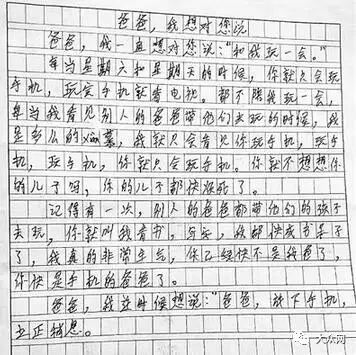 爸爸,我想对您说
爸爸,我一直想对您说:“和我玩一会。”
每当星期六和星期天的时候,你就只会玩
手机,玩完手机就看电视。都不陪我玩一会,
每当我看见别人的爸爸带他们去玩的时候,我
是多么的xian慕,我就只会看见你玩手机,玩手
机,玩手机,你就只会玩手机。你就不想想你
的儿子吗,你的儿子都快疯死了。
记得有一次,别人的爸爸都带他们的孩子
去玩,你就叫我看书,写字,我都快成书呆子
了,我真的非常生气,你已经快不是我爸了,
你快是手机的爸爸了。
爸爸,我这时候想说:“爸爸,放下手机,
立正稍息。
大众网